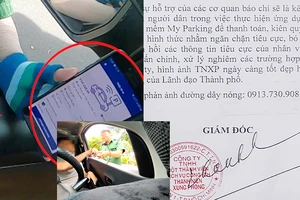 sự hỗ trợ của các cơ quan báo chí sẽ là kê
người dân trong việc thực hiện ứng dụ
mềm My Parking để thanh toán, kiên quy
hình thức nhằm ngăn chặn tiêu cực, bó
hồi các thông tin tiêu cực của nhân v
ấn chỉnh, xử lý nghiêm các trường hợp
t, hình ảnh TNXP ngày càng tốt đẹp h
của Lãnh đạo Thành phố.
phản ánh đường dây nóng: 0913.730.908
GIÁM ĐỐC
CÔNG TY
TNHH
MỘT THÀNH VIÊN
DỊCH VỤ CÔNG ÍCH
THANH NIÊN
XUNG PHONG